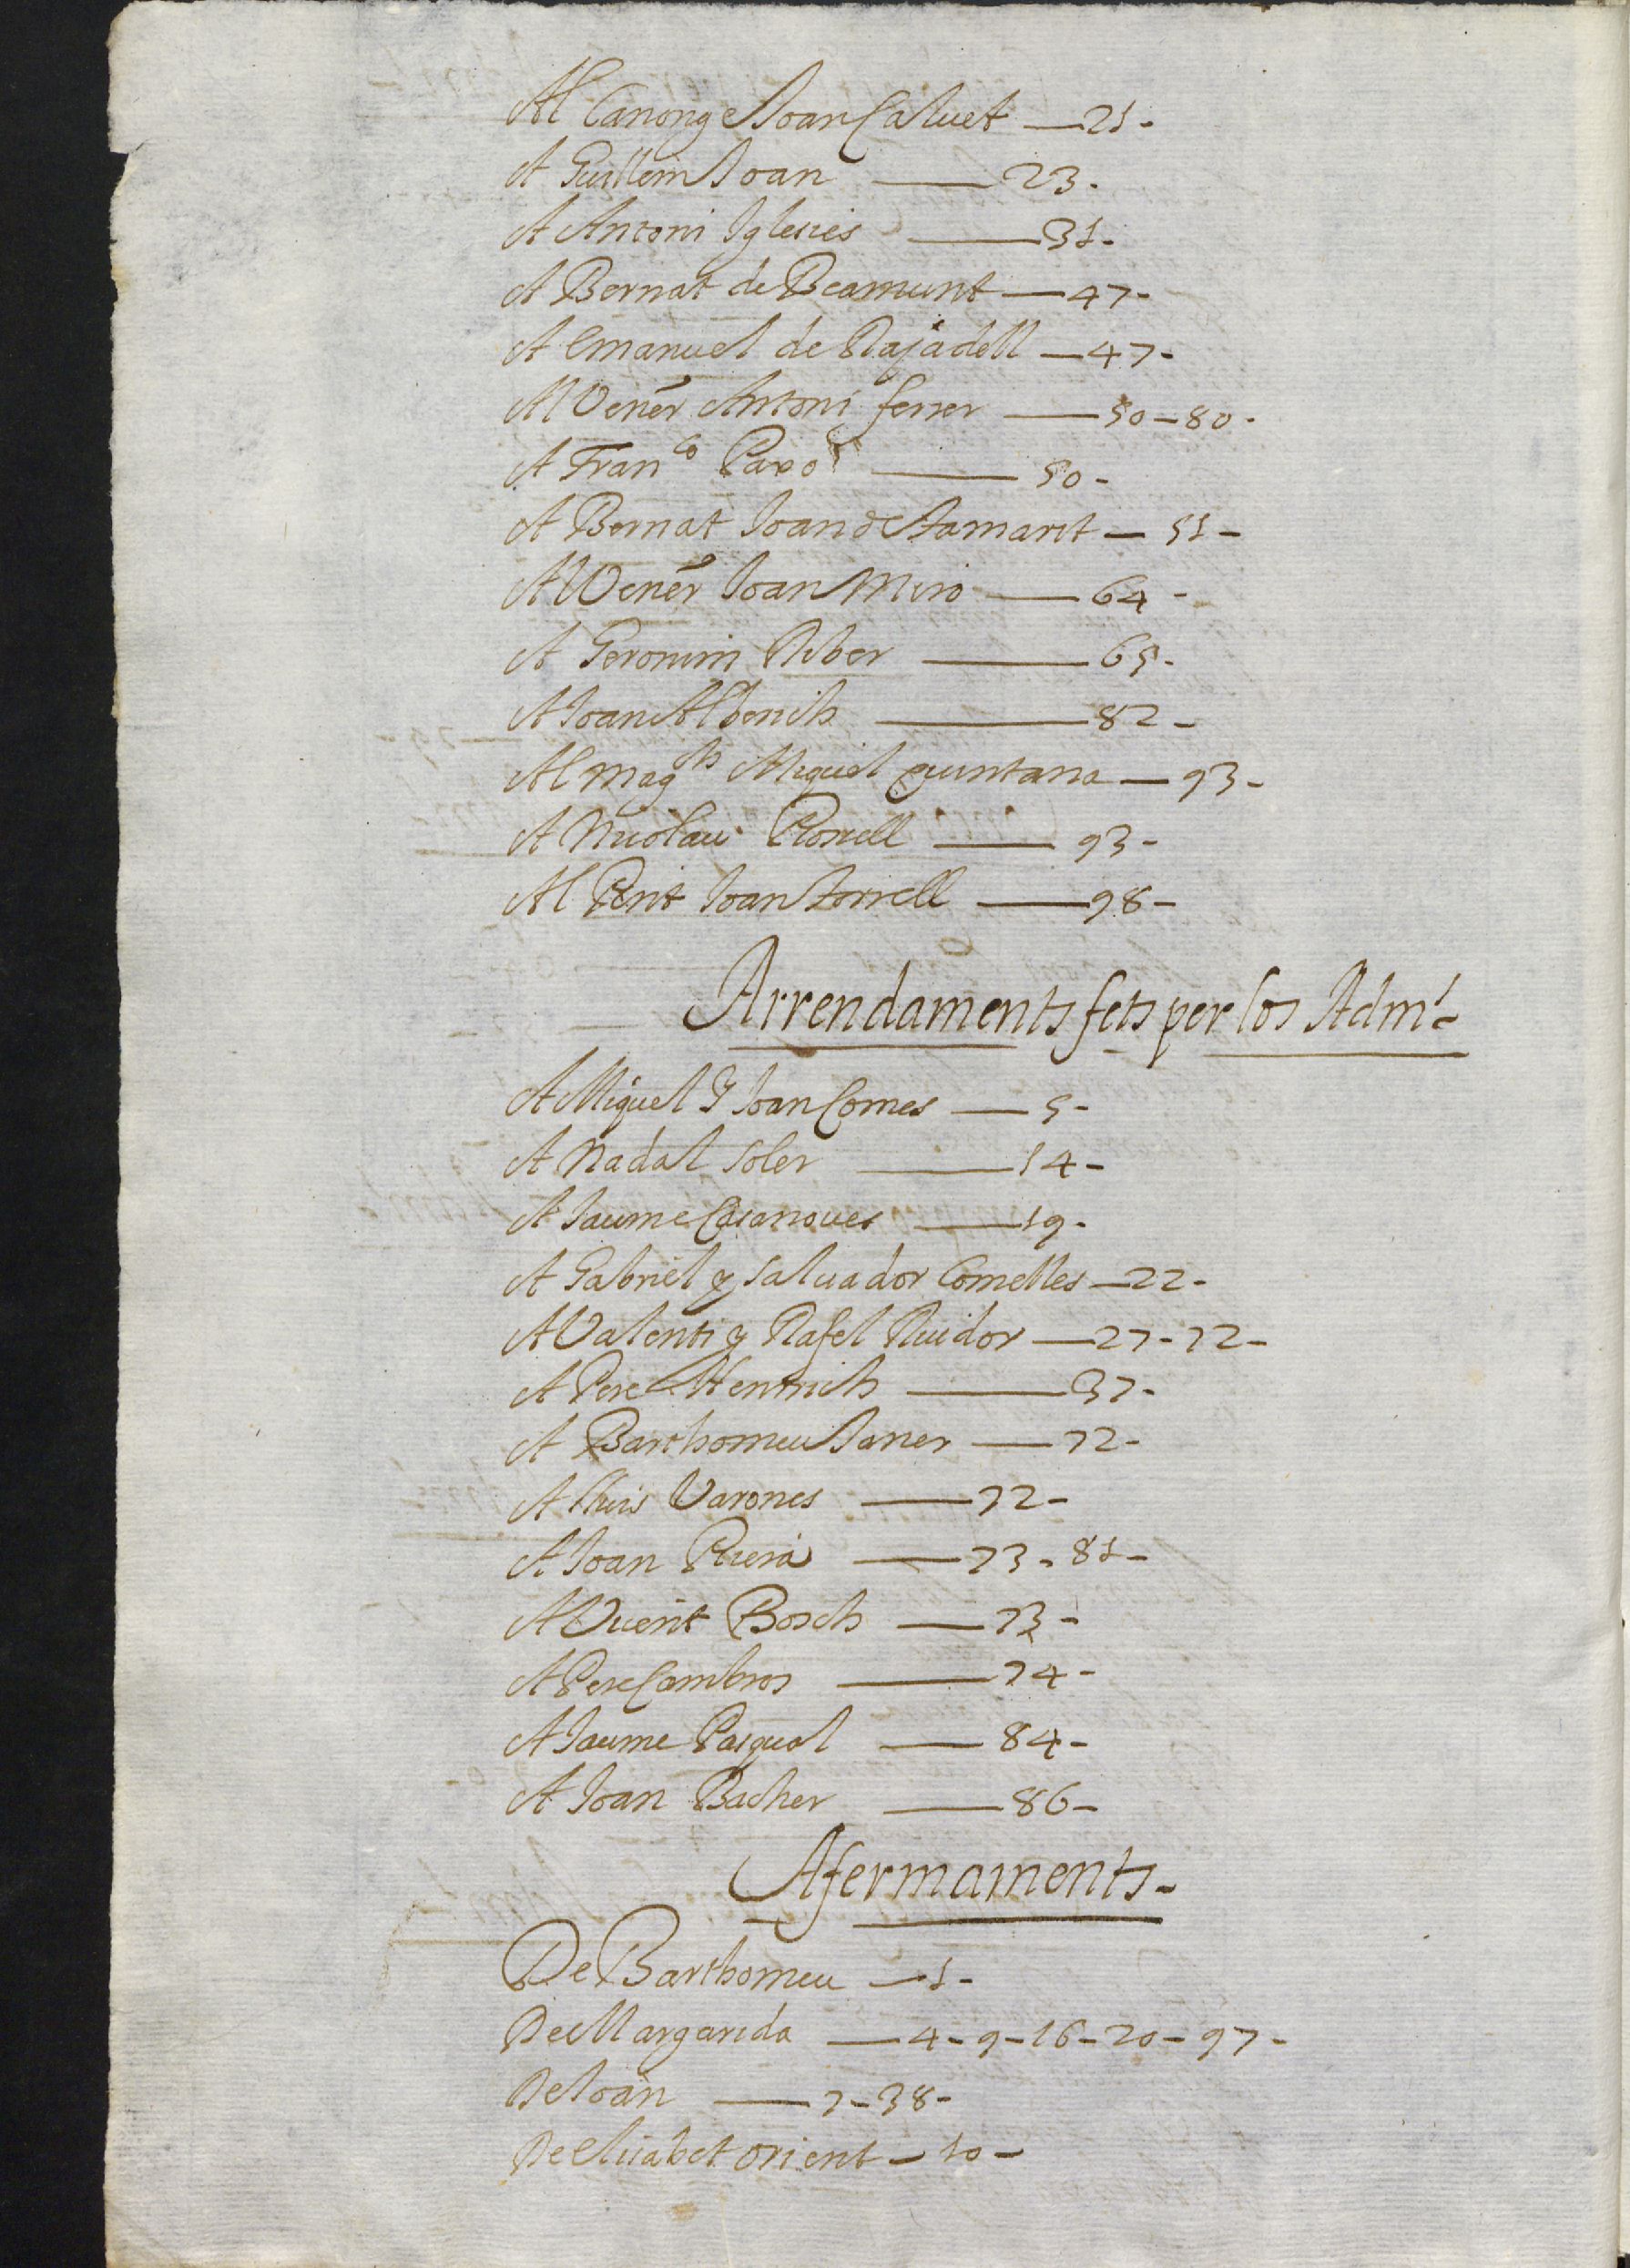 Al Canonge Joan Caluet — 21 -
A Guillem Joan — 23 .
A Antoni Iglesies — 31 -
A Bernat de Beamunt — 47 -
A Emanuel de Rajadell — 47 -
Al Vener Antoni ferrer — 50 — 80 -
A Fran.co — 50 -
A Bernat Joan de tamarit — 51 -
Al Vener Joan Miro — 64 -
A Geronim Riber — 65 -
A Joan Alberich — 82 -
Al Mag.ch Miquel quintana — 93 -
A Nicolau Rossell — 93 -
Al Joan torrell — 98 -
Arrendaments fets per los Adm.s
A Miquel y Joan Comes — 5 -
A Nadal soler — 14 -
A Jaume Casanoues — 19 -
A Gabriel y saluador Comelles — 22 -
A Valenti y Rafel Ruidor — 27 - 72 -
A Pere Henrich — 37 -
A Barthomeu Janer — 72 -
A lluis Varones — 72 -
A Joan Riera — 73 - 81 -
A Vicent Bosch — 73 -
A Pere Cambros — 74 -
A Jaume Pasqual — 84 -
A Joan Bacher — 86 -
Afermaments -
De Barthomeu — 1 -
De Margarida — 4 - 9 - 16 - 20 - 97 -
De Joan — 7 - 38 -
De Elisabet orient — 10 -